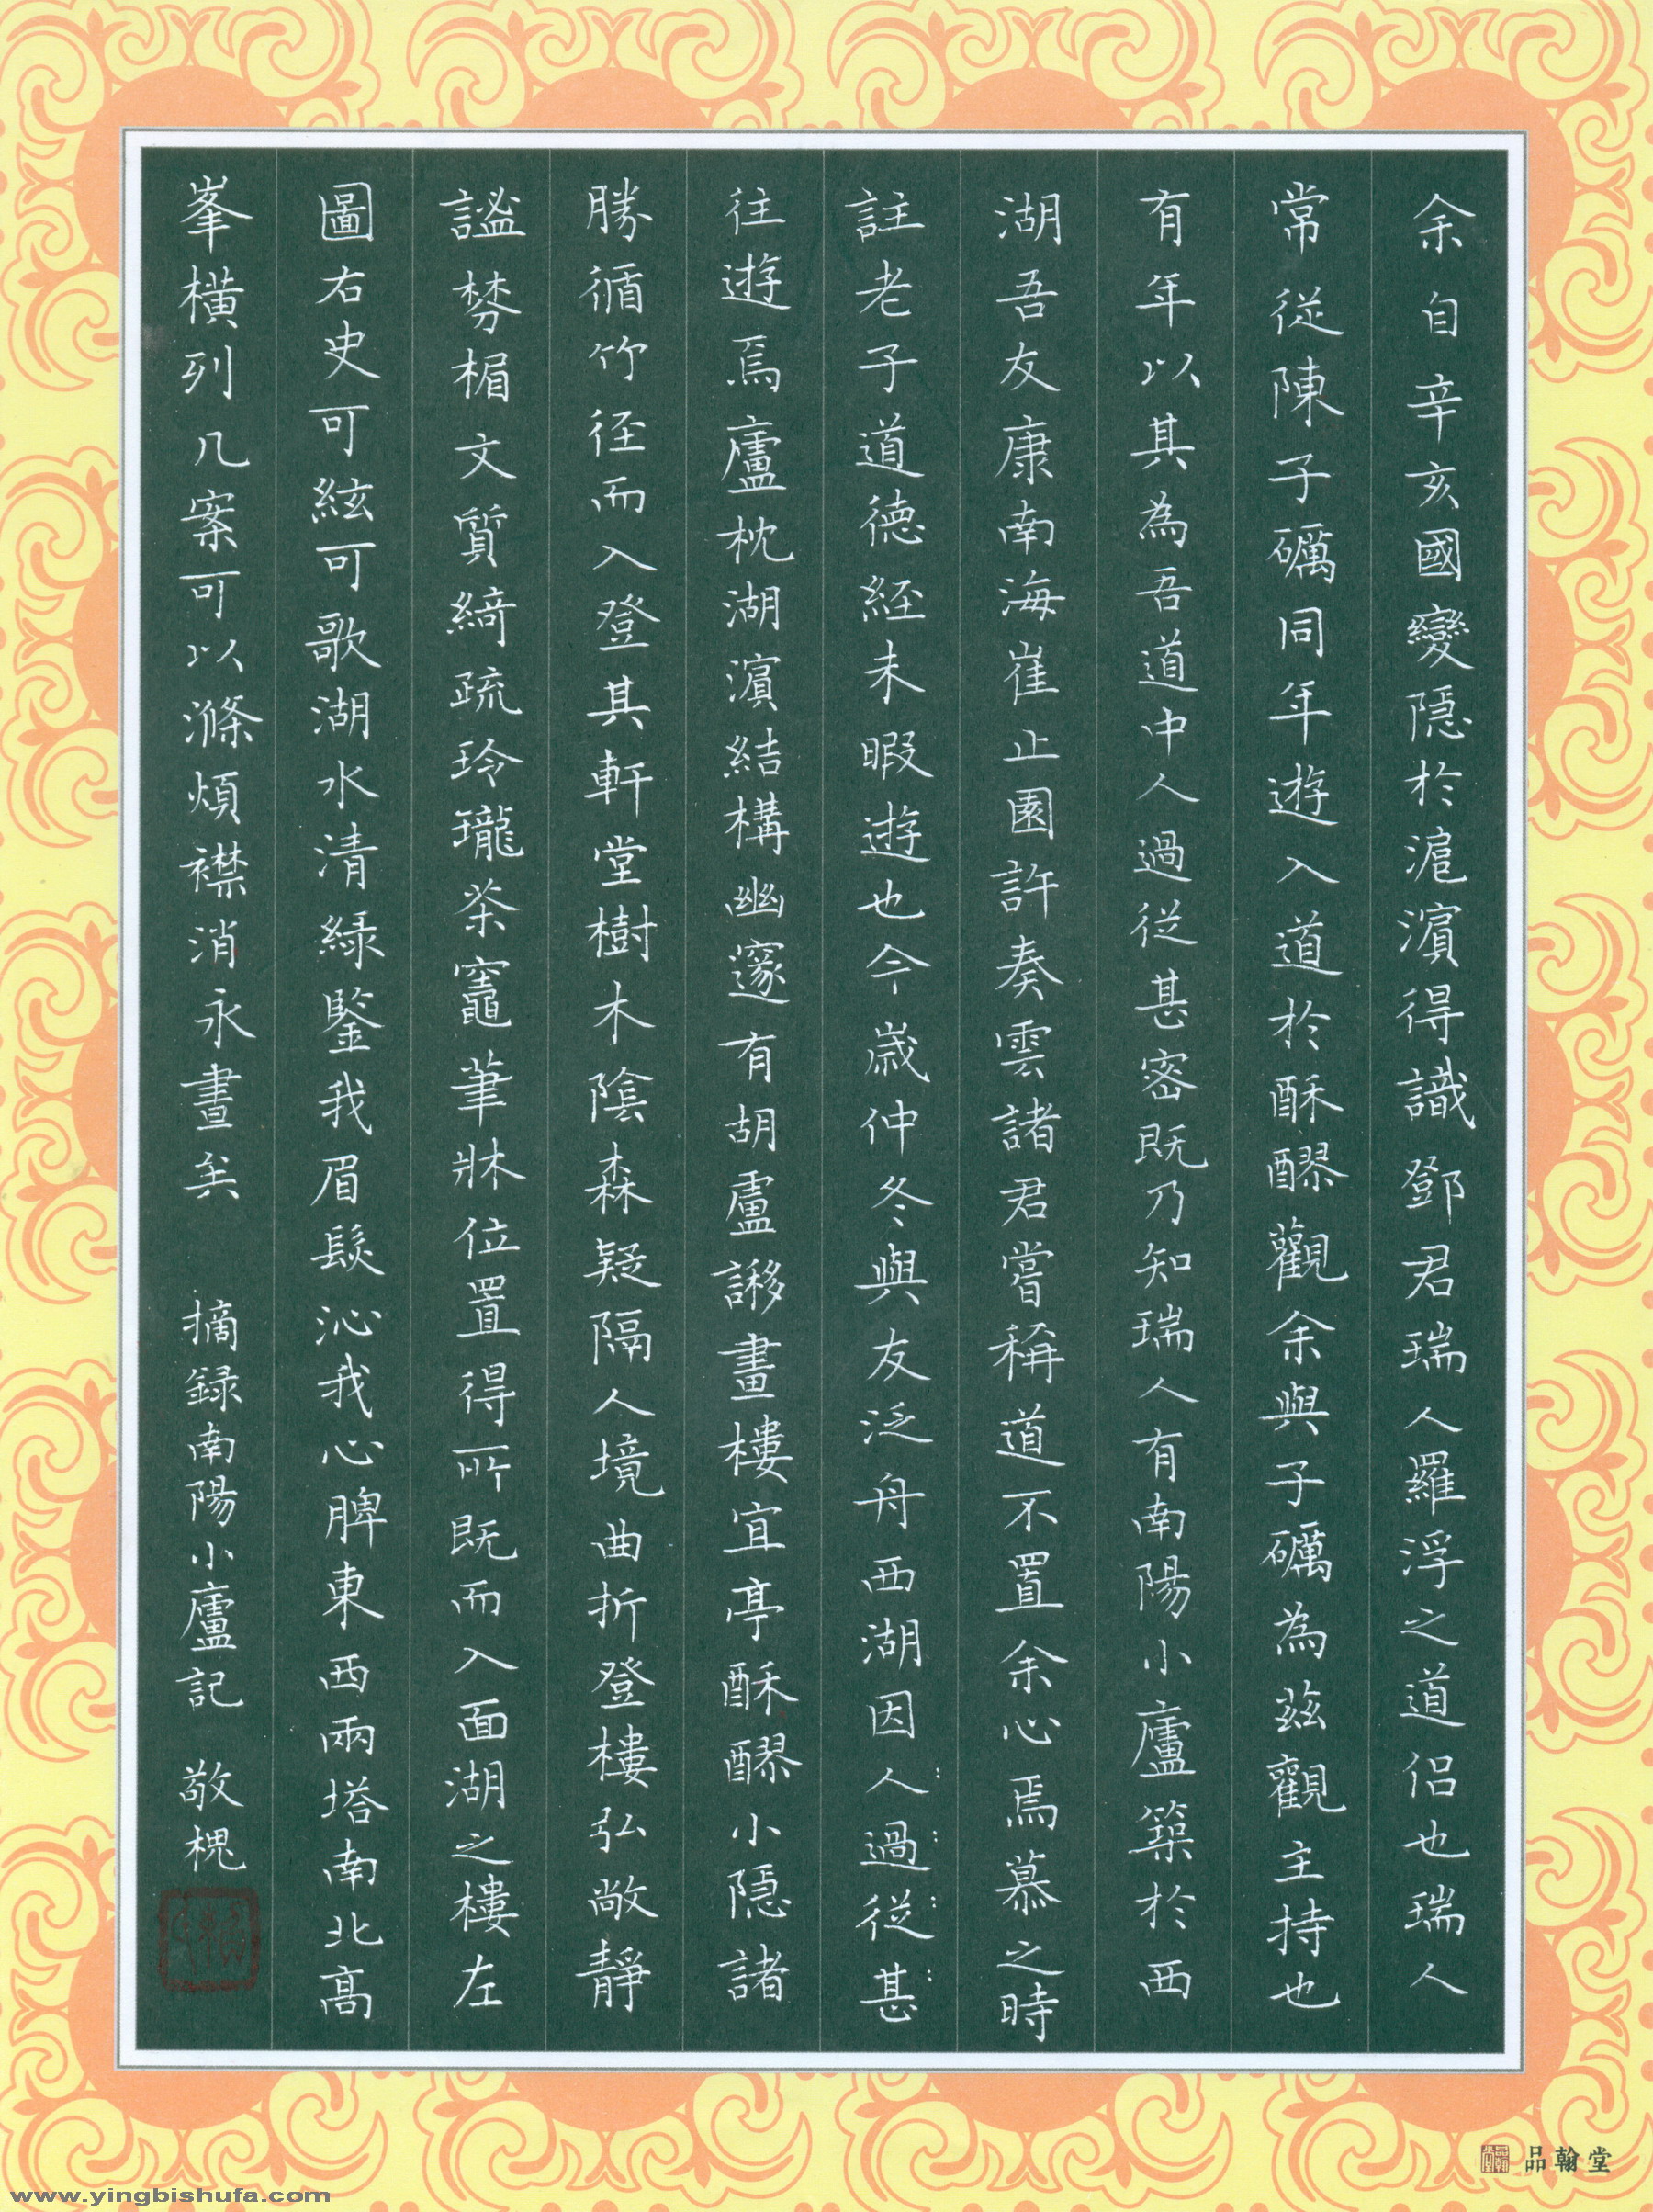 余自辛亥國變隱於滬濱得識鄧君瑞人羅浮之道侶也瑞人
常從陳子礪同年遊入道於酥醪觀余與子礪為茲觀主持也
有年以其為吾道中人過從甚密既乃知瑞人有南陽小廬築於西
湖吾友康南海崔止園許奏雲諸君嘗稱道不置余心焉慕之時
註老子道德經未暇遊也今歲仲冬與友泛舟西湖因人過從甚
往遊焉廬枕湖濱結構幽邃有胡廬謻畫樓宜亭酥醪小隱諸
勝循竹徑而入登其軒堂樹木陰森疑隔人境曲折登樓弘敞靜
謐棼楣文質綺疏玲瓏茶竈筆牀位置得所既而入面湖之樓左
圖右史可絃可歌湖水清綠鑒我眉髮沁我心脾東西兩塔南北高
峯橫列几案可以滌煩襟消永晝矣 摘録南陽小廬記 敬槐
品翰堂
www.yingbishufa.com